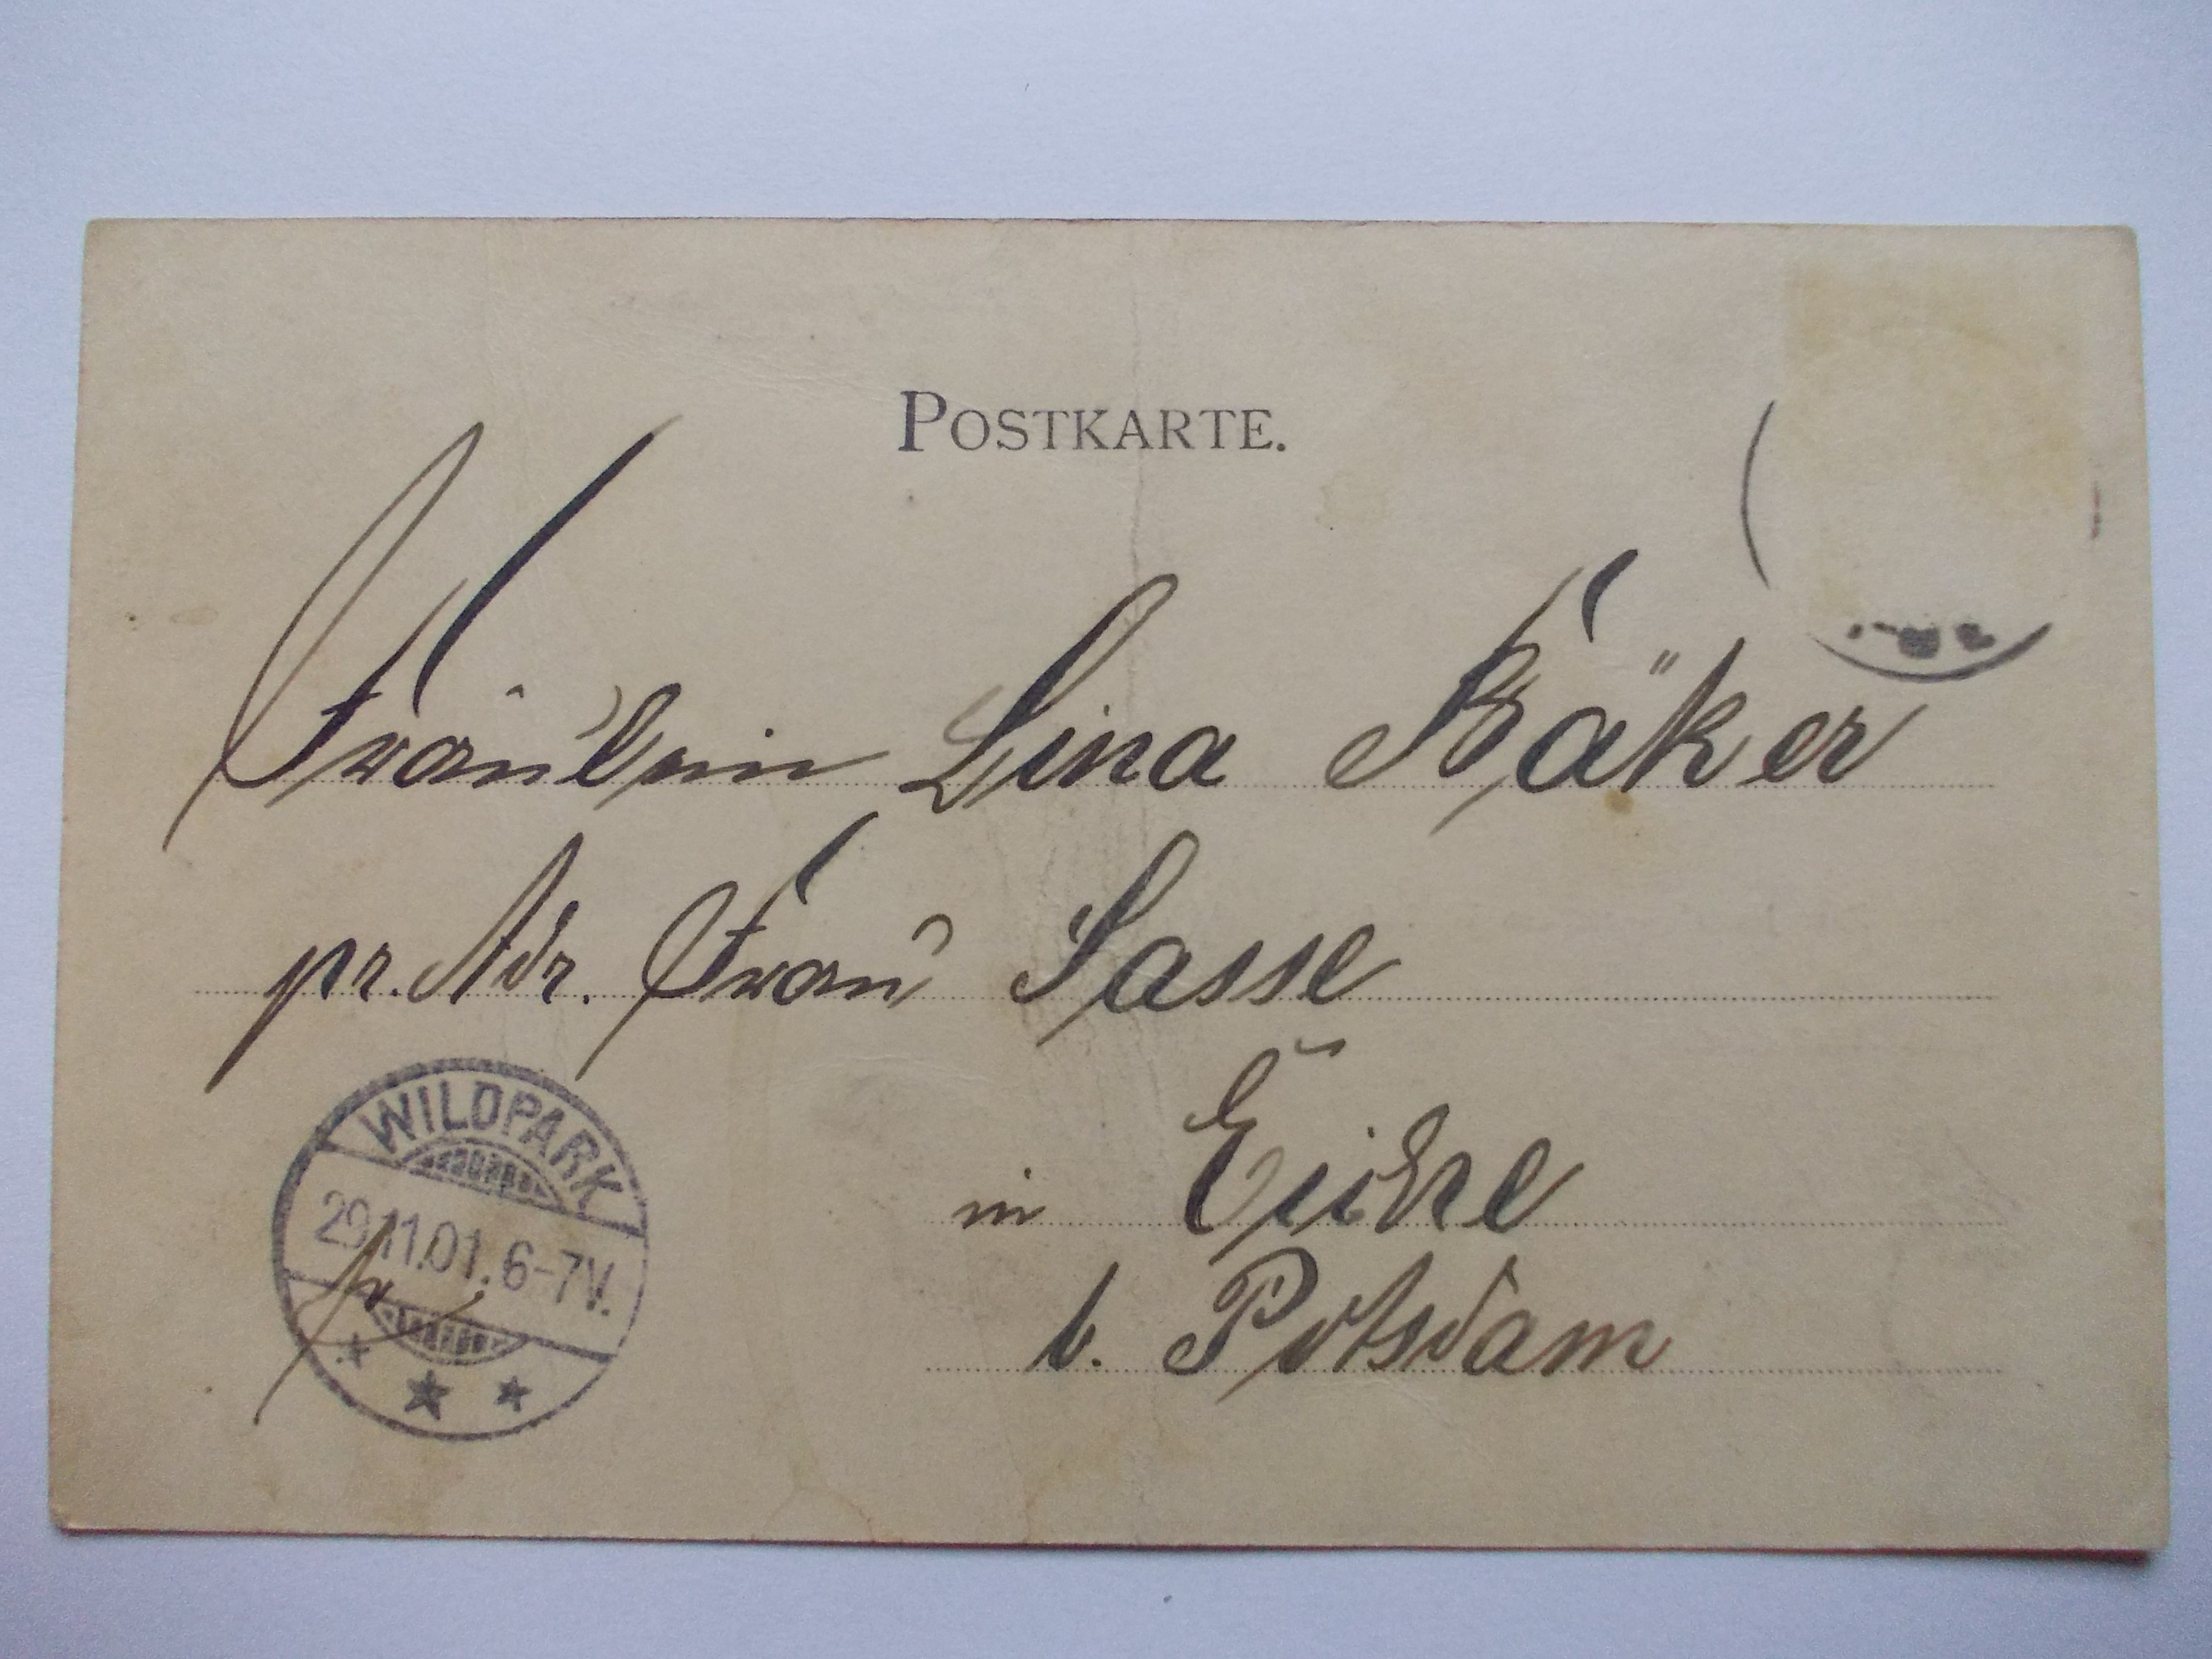 POSTKARTE.
Fräulein Lina Bäker
pr. Adr. Frau Sasse
in Eiche
b. Potsdam
WILDPARK
29.11.01. 6-7V.